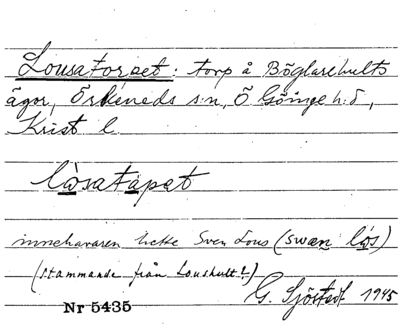 Lousatorpet: torp å Böglarehults
ägor, Örkeneds s:n, Ö Göinge h:d,
Krist l.
låsatåpet
innehavaren hette Sven Lous (swæn lås)
(stammande från Loushult!)
G. Sjöstedt 1945
Nr 5435